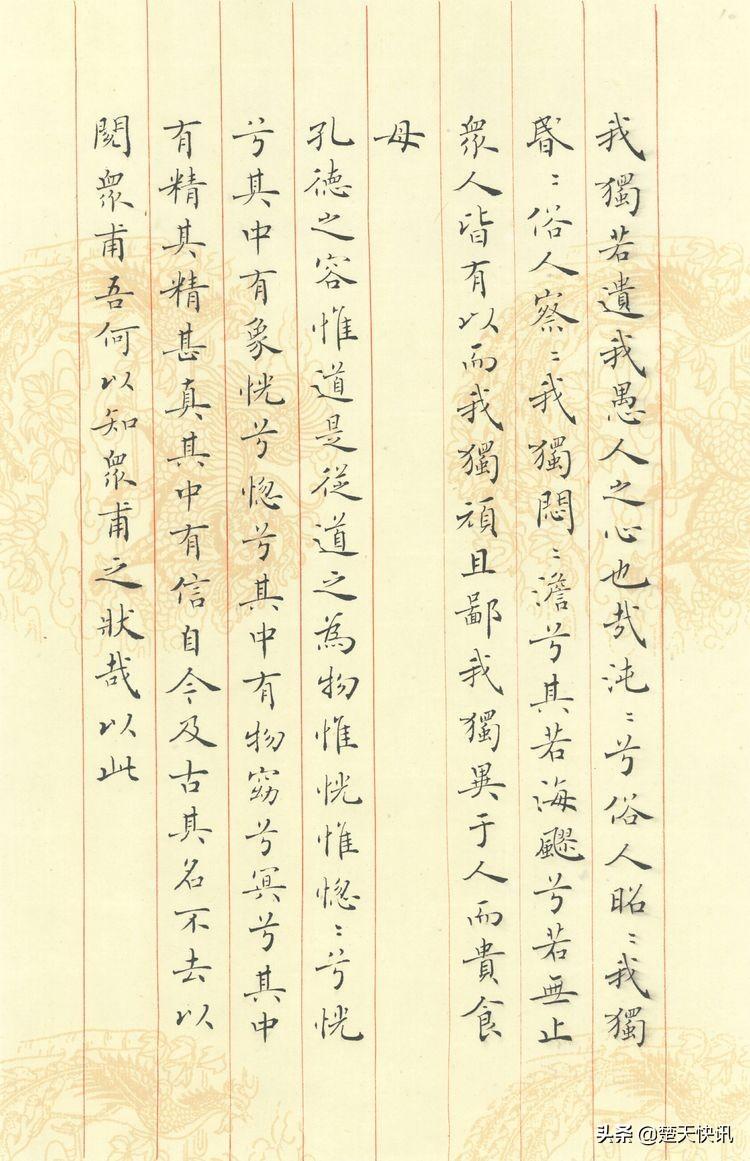 我獨若遺我愚人之心也哉沌〻兮俗人昭〻我獨
昏〻俗人察〻我獨悶〻澹兮其若海飂兮若無止
眾人皆有以而我獨頑且鄙我獨異于人而貴食
母
孔德之容惟道是從道之為物惟恍惟惚〻兮恍
兮其中有象恍兮惚兮其中有物窈兮冥兮其中
有精其精甚真其中有信自今及古其名不去以
閱眾甫吾何以知眾甫之狀哉以此
头条 @楚天快讯